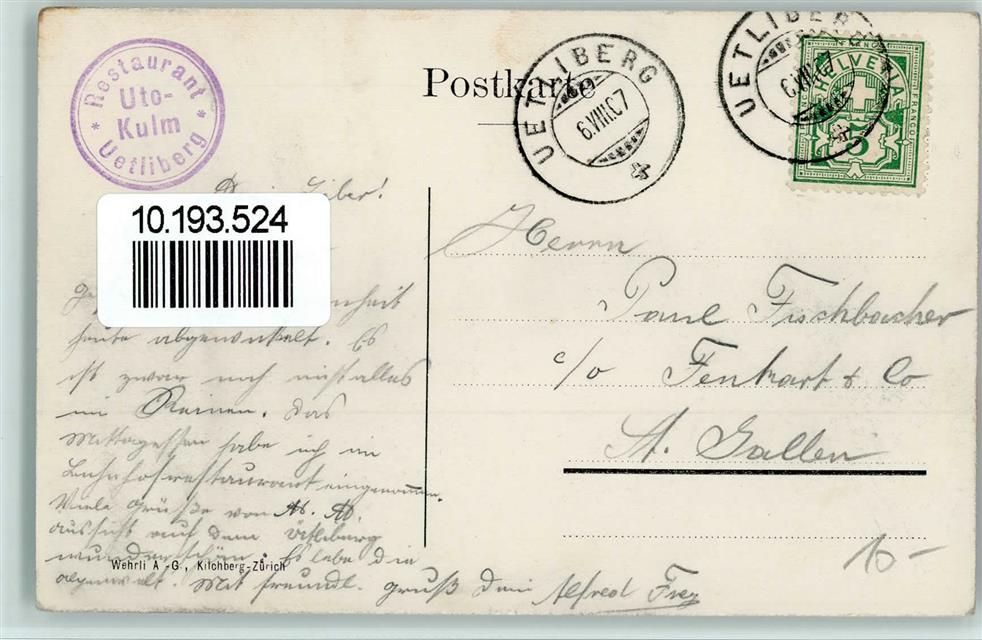 Restaurant
Uto-
Kulm
Uetliberg
Postkarte
UETLIBERG
6.VIII.07
UETLIBERG
6.VIII.07
HELVETIA
FRANCO
5
10.193.524
Lieber!
heute abgewickelt. Es
ist zwar noch nicht alles
im Reinen. Das
Mittagessen habe ich im
Bahnhofrestaurant eingenommen.
Viele Grüße von
Aussicht auf dem Ütliberg
wunderschön. Es lebe die
Mit freundl. Gruß Dein Alfred Frey
Wehrli A.-G., Kilchberg-Zürich
Herrn
Paul Fischbacher
c/o Fenkart & Co
St. Gallen
10-